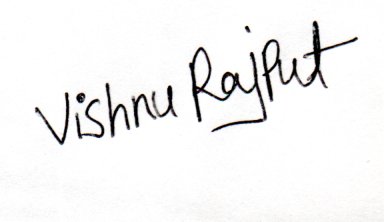 Vishnu Rajput